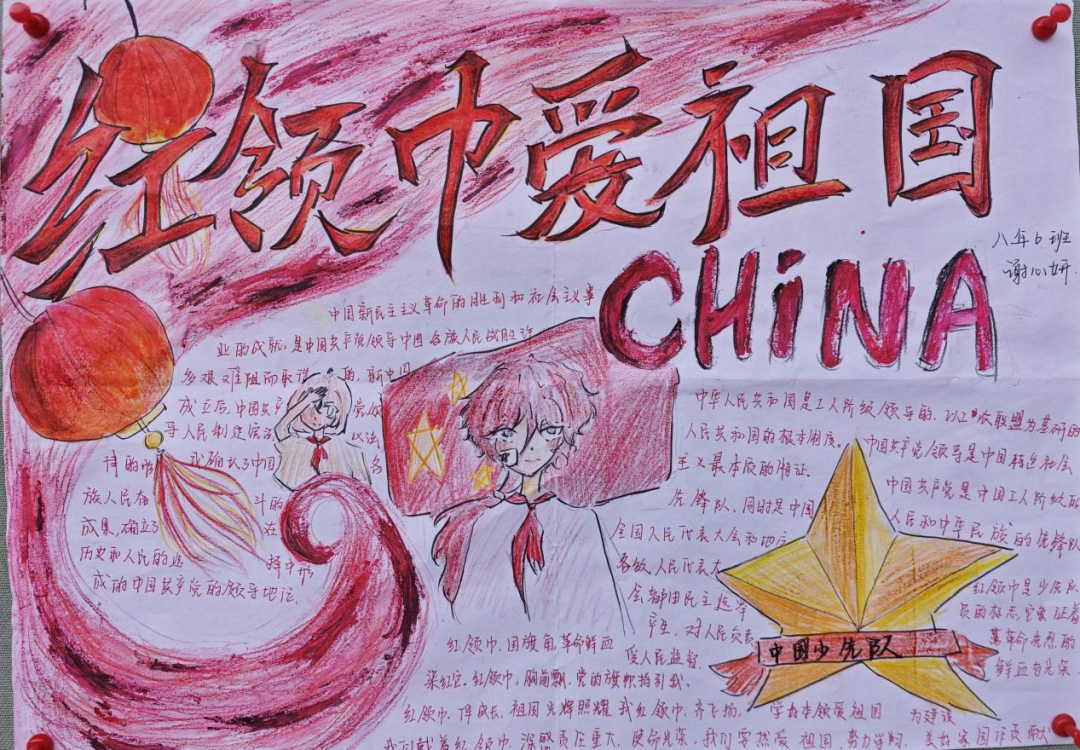 红领巾爱祖国
CHINA
八年6班
谢心妍
中国新民主主义革命的胜利和社会主义事
业的成就,是中国共产党领导中国各族人民战胜许
多艰难险阻而取得的,新中国
成立后,中国共产党领
导人民制定宪法 以法
律的 确认了中国 各
族人民 斗的
成果,确立了 在
历史和人民的选择中形
成的中国共产党的领导地位
中华人民共和国是工人阶级领导的,以工农联盟为基础的
人民共和国的根本制度。中国共产党领导是中国特色社会
主义最本质的特征。中国共产党是中国工人阶级的
先锋队,同时是中国人民和中华民族的先锋队
全国人民代表大会和地方
各级人民代表大
会都由民主选举
产生,对人民负责
受人民监督。
红领巾是少先队
员的标志,它象征着
革命先烈的
鲜血与光荣
中国少先队
红领巾,国旗角,革命鲜血
染红它。红领巾,胸前飘,党的旗帜指引我、
红领巾,伴成长,祖国光辉照耀我红领巾,齐飞扬,学好本领爱祖国 为建设
我们戴着红领巾,深感责任重大,使命光荣,我们要热爱祖国,努力学习, 美好家园作贡献